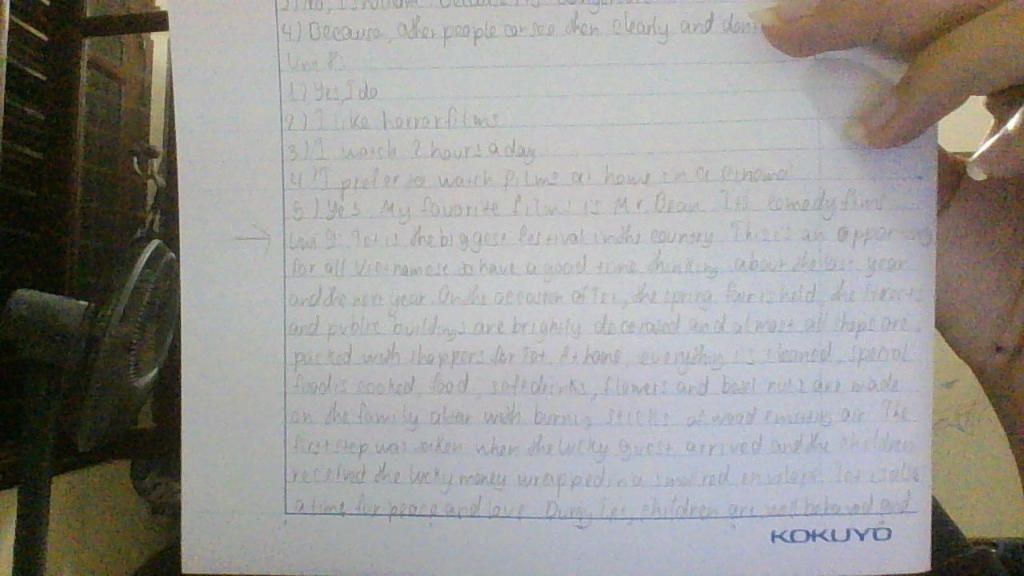 4) Because, other people can see them clearly and don't
Unit 8:
1) Yes, I do
2) I like horror films
3) I watch 2 hours a day
4) I prefer to watch films at home in a cinema
5) Yes. My favorite films is Mr. Bean. It's comedy films
Unit 9: Tet is the biggest festival in the country. This is an
for all Vietnamese to have a good time thinking about the last year
and the next year. On the occasion of Tet, the spring fair is held, the streets
and public buildings are brightly decorated and almost all shops are
packed with shoppers for Tet. At home, everything is cleaned, special
food is cooked, food, soft drinks, flowers and betel nuts are made
on the family altar with burning sticks of wood air. The
first step was taken when the lucky guest arrived and the children
received the lucky money wrapped in a small red envelope. Tet is also
a time for peace and love. During Tet, children are well behaved and
KOKUYO